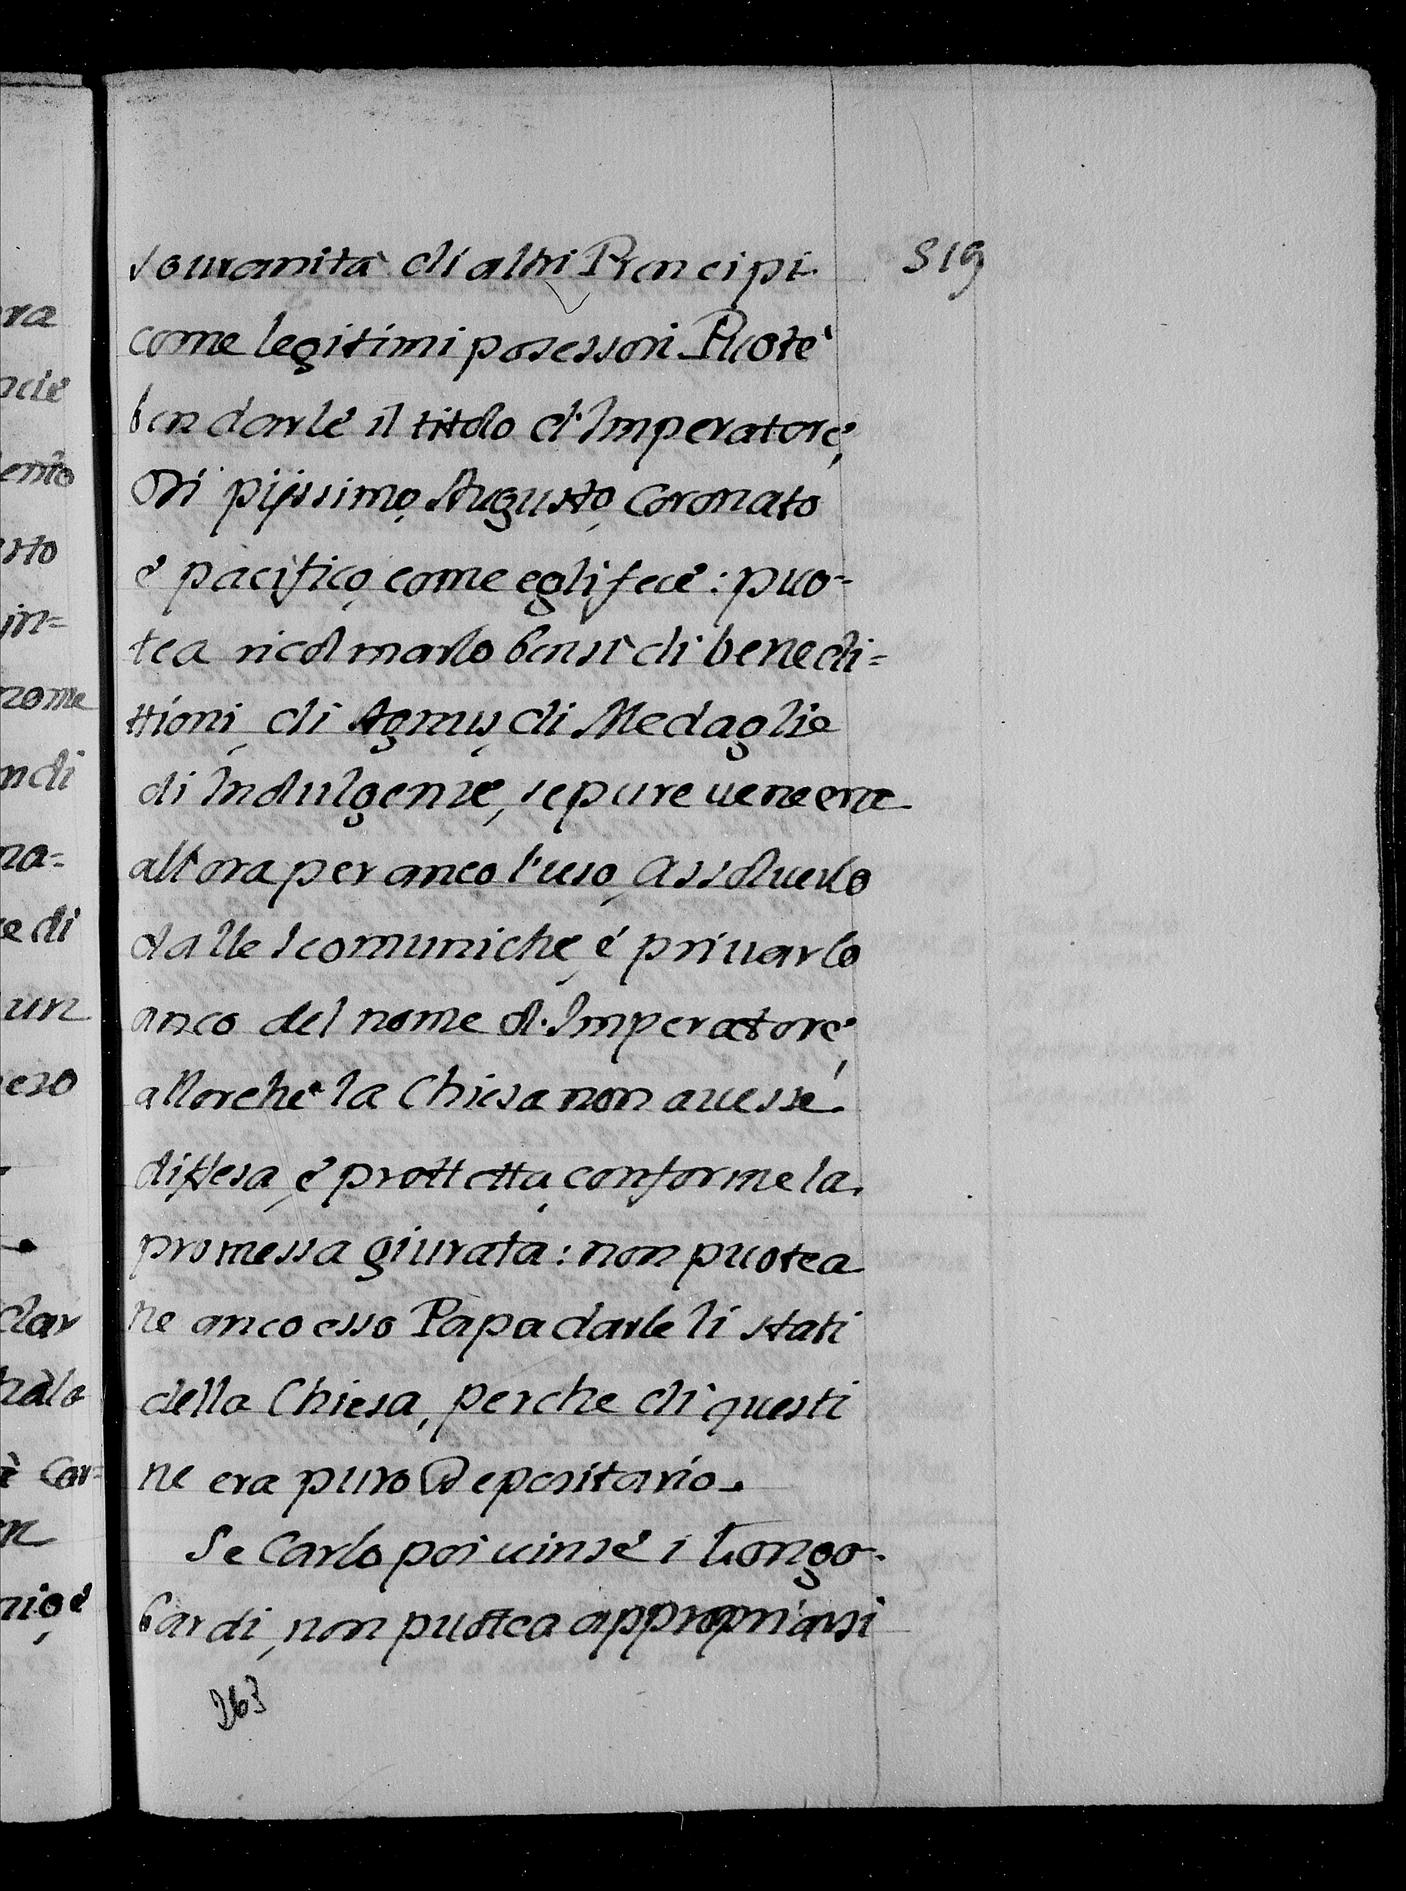 519
souranità di altri Prencipi
come legitimi posessori. Puotè
ben darle il titolo d'Imperatore,
Di pijssimo, Augusto, Coronato
è pacifico, come egli fece: puo-
tea ricolmarlo bensì di benedi=
ttioni, di Agnus, di Medaglie
di Indulgenze, se pure ue ne era
all'ora per anco l'uso, Assoluerlo
dalle scomuniche, é priuarlo
anco del nome d'Imperatore,
allorche la Chiesa non auesse
diffesa, è prottetta, conforme la
promessa giurata: non puotea
ne anco esso Papa darle li stati
della Chiesa, perche di questi
ne era puro Depositario.
Se Carlo poi uinse i Longo-
bardi, non puotea appropriarsi
263
ra
ncie
ento
rto
in=
nome
ndi
na=
e di
un
eso
clar
è Car=